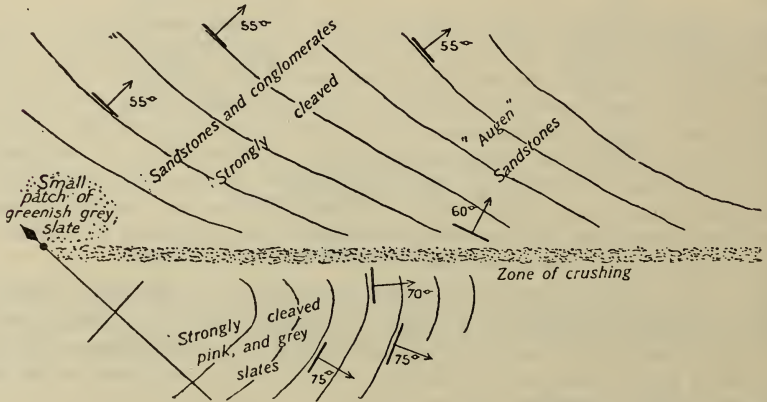 55°
55°
55°
55°
Sandstones and conglomerates
Strongly cleaved
"Augen"
Sandstones
Small
patch of
greenish grey
slate
60°
Zone of crushing
70°
Strongly cleaved
pink, and grey
slates
75°
75°